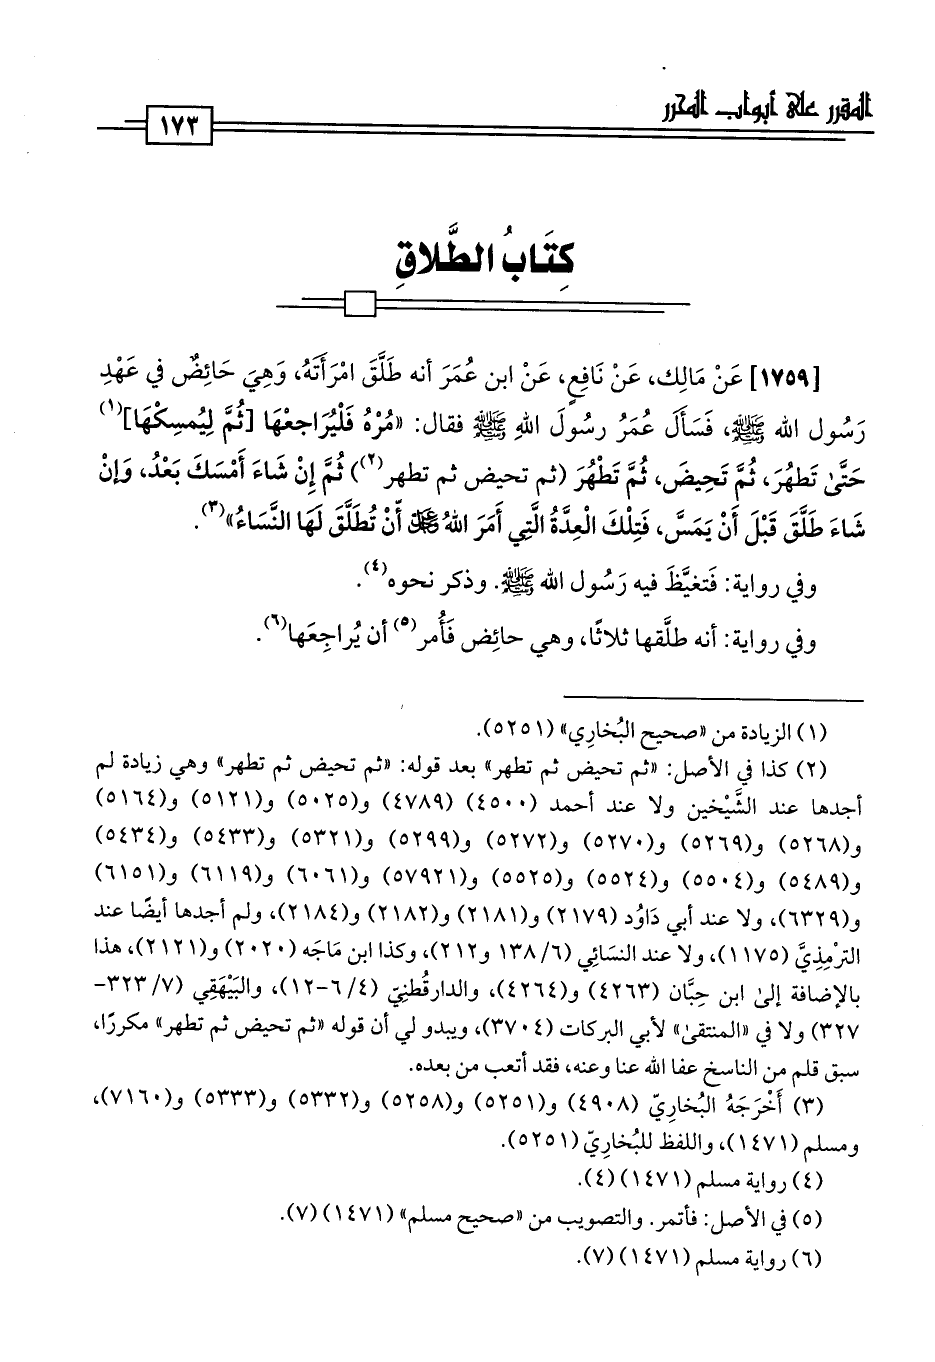 المقرر على أبواب المحرر
١٧٣
كِتَابُ الطَّلاقِ
[١٧٥٩] عَنْ مَالِك، عَنْ نَافِعٍ، عَنْ ابن عُمَرَ أنه طَلَّقَ امْرَأَتَهُ، وَهِيَ حَائِضٌ في عَهْدِ
رَسُول الله ﷺ، فَسَأَلَ عُمَرُ رسُولَ اللهِ ﷺ فقال: «مُرْهُ فَلْيُرَاجعْهَا [ثُمَّ لِيُمسِكْهَا](١)
حَتَّىٰ تَطهُرَ، ثُمَّ تَحِيضَ، ثُمَّ تَطْهُرَ (ثم تحيض ثم تطهر(٢)) ثُمَّ إنْ شَاءَ أَمْسَكَ بَعْدُ، وَإنْ
شَاءَ طَلَّقَ قَبْلَ أَنْ يَمَسَّ، فَتِلْكَ الْعِدَّةُ الَّتِي أَمَرَ اللهُ ﷻ أنْ تُطَلَّقَ لَهَا النَّسَاءُ»(٣).
وفي رواية: فَتغيَّظَ فيه رَسُول الله ﷺ. وذكر نحوه(٤).
وفي رواية: أنه طلَّقها ثلاثًا، وهي حائِض فَأُمر(٥) أن يُراجِعَها(٦).
(١) الزيادة من «صحيح البُخاري» (٥٢٥١).
(٢) كذا في الأصل: «ثم تحيض ثم تطهر» بعد قوله: «ثم تحيض ثم تطهر» وهي زيادة لم
أجدها عند الشَّيْخين ولا عند أحمد (٤٥٠٠) (٤٧٨٩) و(٥٠٢٥) و(٥١٢١) و(٥١٦٤)
و(٥٢٦٨) و(٥٢٦٩) و(٥٢٧٠) و(٥٢٧٢) و(٥٢٩٩) و(٥٣٢١) و(٥٤٣٣) و(٥٤٣٤)
و(٥٤٨٩) و(٥٥٠٤) و(٥٥٢٤) و(٥٥٢٥) و(٥٧٩٢١) و(٦٠٦١) و(٦١١٩) و(٦١٥١)
و(٦٣٢٩)، ولا عند أبي دَاوُد (٢١٧٩) و(٢١٨١) و(٢١٨٢) و(٢١٨٤)، ولم أجدها أيضًا عند
الترْمِذِيَّ (١١٧٥)، ولا عند النسَائي (٦/ ١٣٨ و٢١٢)، وكذا ابن مَاجَه (٢٠٢٠) و(٢١٢١)، هذا
بالإضافة إلىٰ ابن حِبَّان (٤٢٦٣) و(٤٢٦٤)، والدارقُطنِيّ (٤/ ٦-١٢)، والبَيْهَقِي (٧/ ٣٢٣-
٣٢٧) ولا في «المنتقىٰ» لأبي البركات (٣٧٠٤)، ويبدو لي أن قوله «ثم تحيض ثم تطهر» مكررًا،
سبق قلم من الناسخ عفا الله عنا وعنه، فقد أتعب من بعده.
(٣) أَخْرَجَهُ البُخاريّ (٤٩٠٨) و(٥٢٥١) و(٥٢٥٨) و(٥٣٣٢) و(٥٣٣٣) و(٧١٦٠)،
ومسلم (١٤٧١)، واللفظ للبُخاريّ (٥٢٥١).
(٤) رواية مسلم (١٤٧١) (٤).
(٥) في الأصل: فأتمر. والتصويب من «صحيح مسلم» (١٤٧١) (٧).
(٦) رواية مسلم (١٤٧١) (٧).